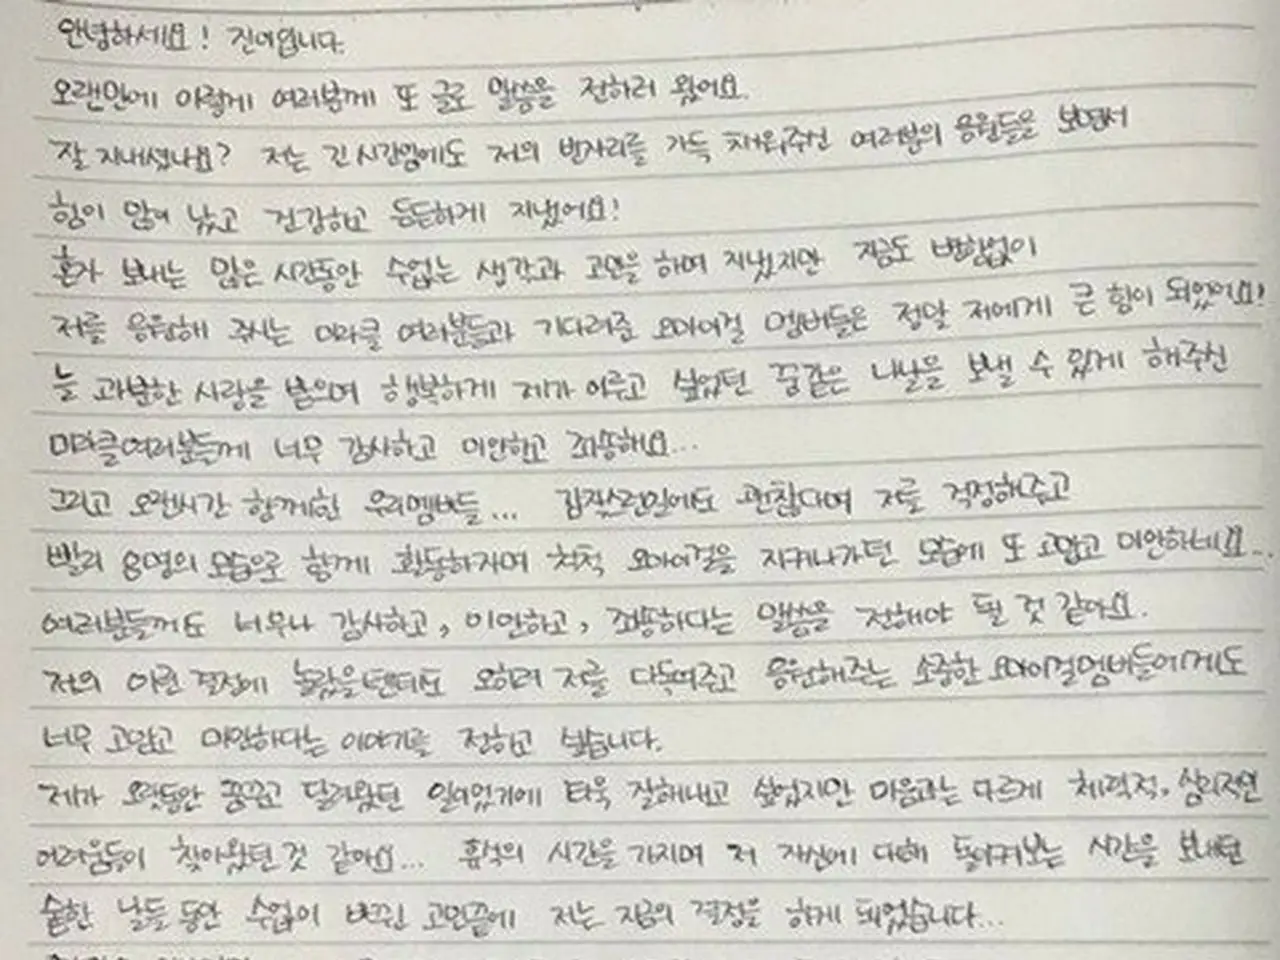 안녕하세요! 진이입니다.
오랜만에 이렇게 여러분께 또 글로 말씀을 전하러 왔어요.
잘 지내셨나요? 저는 긴 시간임에도 저의 빈자리를 가득 채워주신 여러분의 응원들을 보면서
힘이 많이 났고 건강하고 든든하게 지냈어요!
혼자 보내는 많은 시간동안 수없는 생각과 고민을 하며 지냈지만 지금도 변함없이
저를 응원해 주시는 미라클 여러분들과 기다려준 오마이걸 멤버들은 정말 저에게 큰 힘이 되었어요!
늘 과분한 사랑을 받으며 행복하게 제가 이루고 싶었던 꿈같은 나날을 보낼 수 있게 해주신
미라클여러분들께 너무 감사하고 미안하고 죄송해요...
그리고 오랜시간 함께한 우리멤버들... 갑작스런일에도 괜찮다며 저를 걱정해주고
빨리 8명의 모습으로 함께 활동하자며 척척 오마이걸을 지켜나가던 모습에 또 고맙고 미안하네요...
여러분들께도 너무나 감사하고, 미안하고, 죄송하다는 말씀을 전해야 될 것 같아요.
저의 이런 결정에 놀랐을텐데도 오히려 저를 다독여주고 응원해주는 소중한 오마이걸멤버들에게도
너무 고맙고 미안하다는 이야기를 전하고 싶습니다.
제가 오랫동안 꿈꾸고 달려왔던 일이었기에 더욱 잘해내고 싶었지만 마음과는 다르게 체력적, 심리적인
어려움들이 찾아왔던것 같아요... 휴식의 시간을 가지며 저 자신에 대해 돌이켜보는 시간을 보내던
숱한 날들 동안 수없이 바뀐 고민끝에 저는 지금의 결정을 하게 되었습니다...